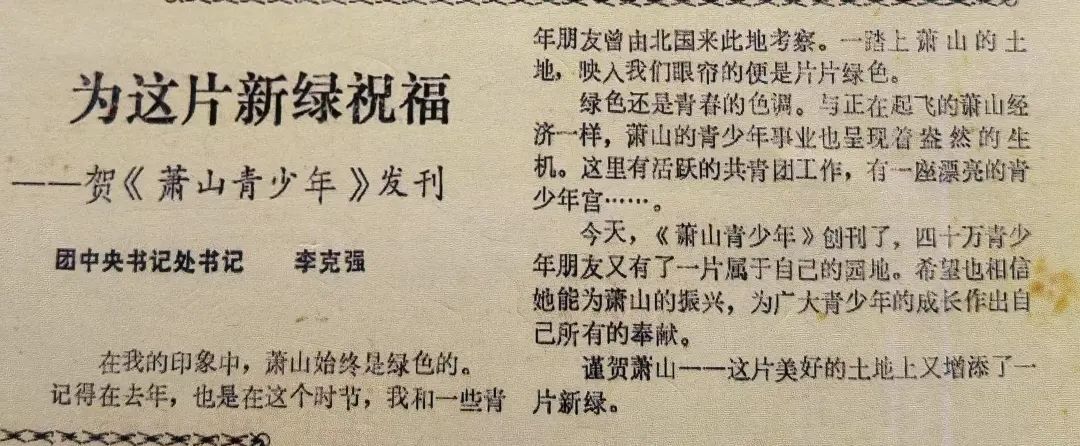 为这片新绿祝福
——贺《萧山青少年》发刊
团中央书记处书记 李克强
在我的印象中，萧山始终是绿色的。
记得在去年，也是在这个时节，我和一些青
年朋友曾由北国来此地考察。一踏上萧山的土
地，映入我们眼帘的便是片片绿色。
绿色还是青春的色调。与正在起飞的萧山经
济一样，萧山的青少年事业也呈现着盎然的生
机。这里有活跃的共青团工作，有一座漂亮的青
少年宫……。
今天，《萧山青少年》创刊了，四十万青少
年朋友又有了一片属于自己的园地。希望也相信
她能为萧山的振兴，为广大青少年的成长作出自
己所有的奉献。
谨贺萧山——这片美好的土地上又增添了一
片新绿。